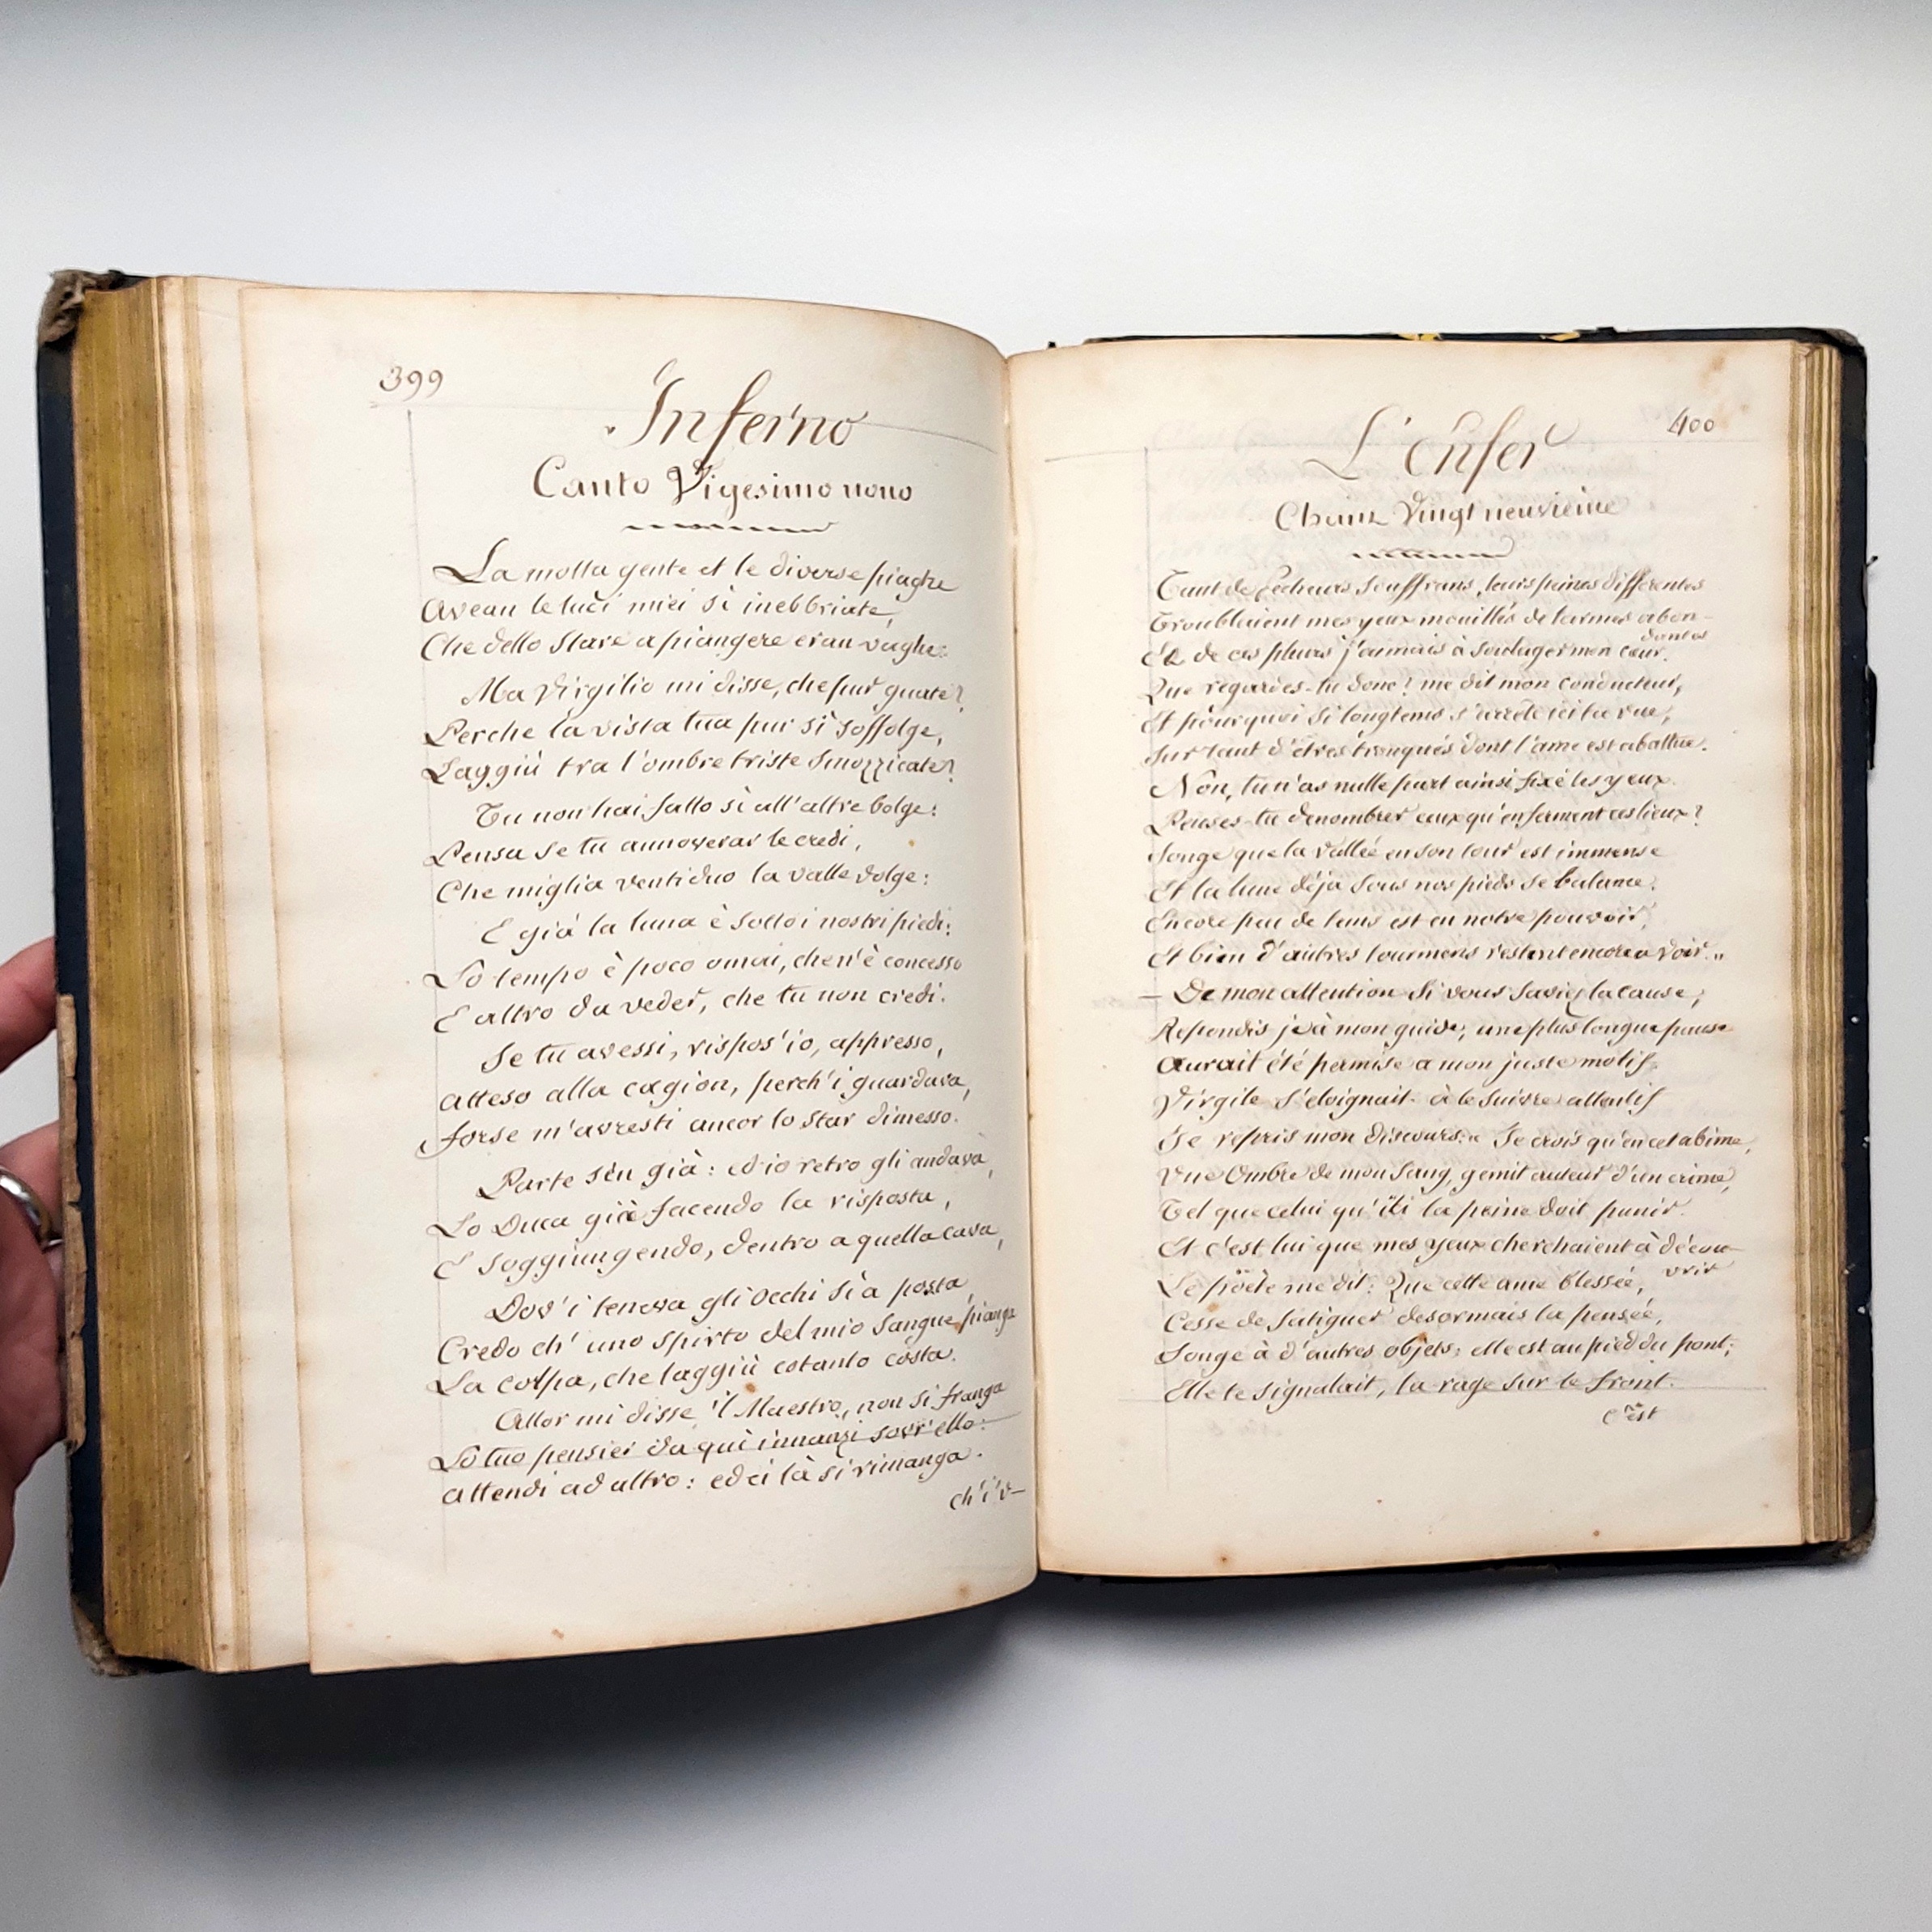 399
Inferno
Canto Vigesimo nono
La molta gente et le diverse piaghe
Avean le luci miei sì inebbriate,
Che dello stare a piangere eran vaghe:
Ma Virgilio mi disse, che pur guate?
Perche la vista tua pur si soffolge,
Laggiù tra l'ombre triste smozzicate?
Tu non hai fatto sì all'altre bolge:
Pensa se tu annoverar le credi,
Che miglia venti duo la valle volge:
E già la luna è sotto i nostri piedi:
Lo tempo è poco omai, che n'è concesso
E altro da veder, che tu non credi.
Se tu avessi, rispos'io, appresso,
Atteso alla cagion, perch'i guardava,
Forse m'avresti ancor lo star dimesso.
Parte sen già: ed io retro gli andava,
Lo Duca già facendo la risposta,
E soggiungendo, dentro a quella cava,
Dov'i teneva gli occhi sì a posta,
Credo ch' uno spirto del mio sangue pianga
La colpa, che laggiù cotanto costa.
Allor mi disse 'l Maestro, non si franga
Lo tuo pensier da qui innanzi sovr'ello:
Attendi ad altro: ed ei là si rimanga.
ch'i'v-
400
L'enfer
Chant Vingt neuvieme
Tant de Pécheurs souffrans, leurs peines différentes
Troublaient mes yeux mouillés de larmes abon-
dantes
Et de ces pleurs j'aimais à soulager mon cœur.
Que regardes-tu donc? me dit mon conducteur,
Et pourquoi si longtems s'arrête ici ta vue,
Sur tant d'êtres tronqués dont l'ame est abattue.
Non, tu n'as nulle part ainsi fixé les yeux.
Penses-tu denombrer ceux qu'enferment ces lieux?
Songe que la Vallée en son tour est immense
Et la lune déja sous nos pieds se balance.
Encore peu de tems est en notre pouvoir,
Et bien d'autres tourmens restent encore a voir."
— De mon attention si vous saviez la cause,
Repondis je à mon guide, une plus longue pause
Aurait été permise a mon juste motif,
Virgile s'eloignait à le suivre attentif
Je repris mon discours: " Je crois qu'en cet abime,
Une Ombre de mon sang, gemit auteur d'un crime,
Tel que celui qu'ici la peine doit punir.
Et c'est lui que mes yeux cherchaient à décou-
vrir
Le poëte me dit: Que cette ame blessée,
Cesse de fatiguer desormais la pensée,
Songe à d'autres objets; elle est au pied du pont;
Elle te signalait, la rage sur le front.
c'est